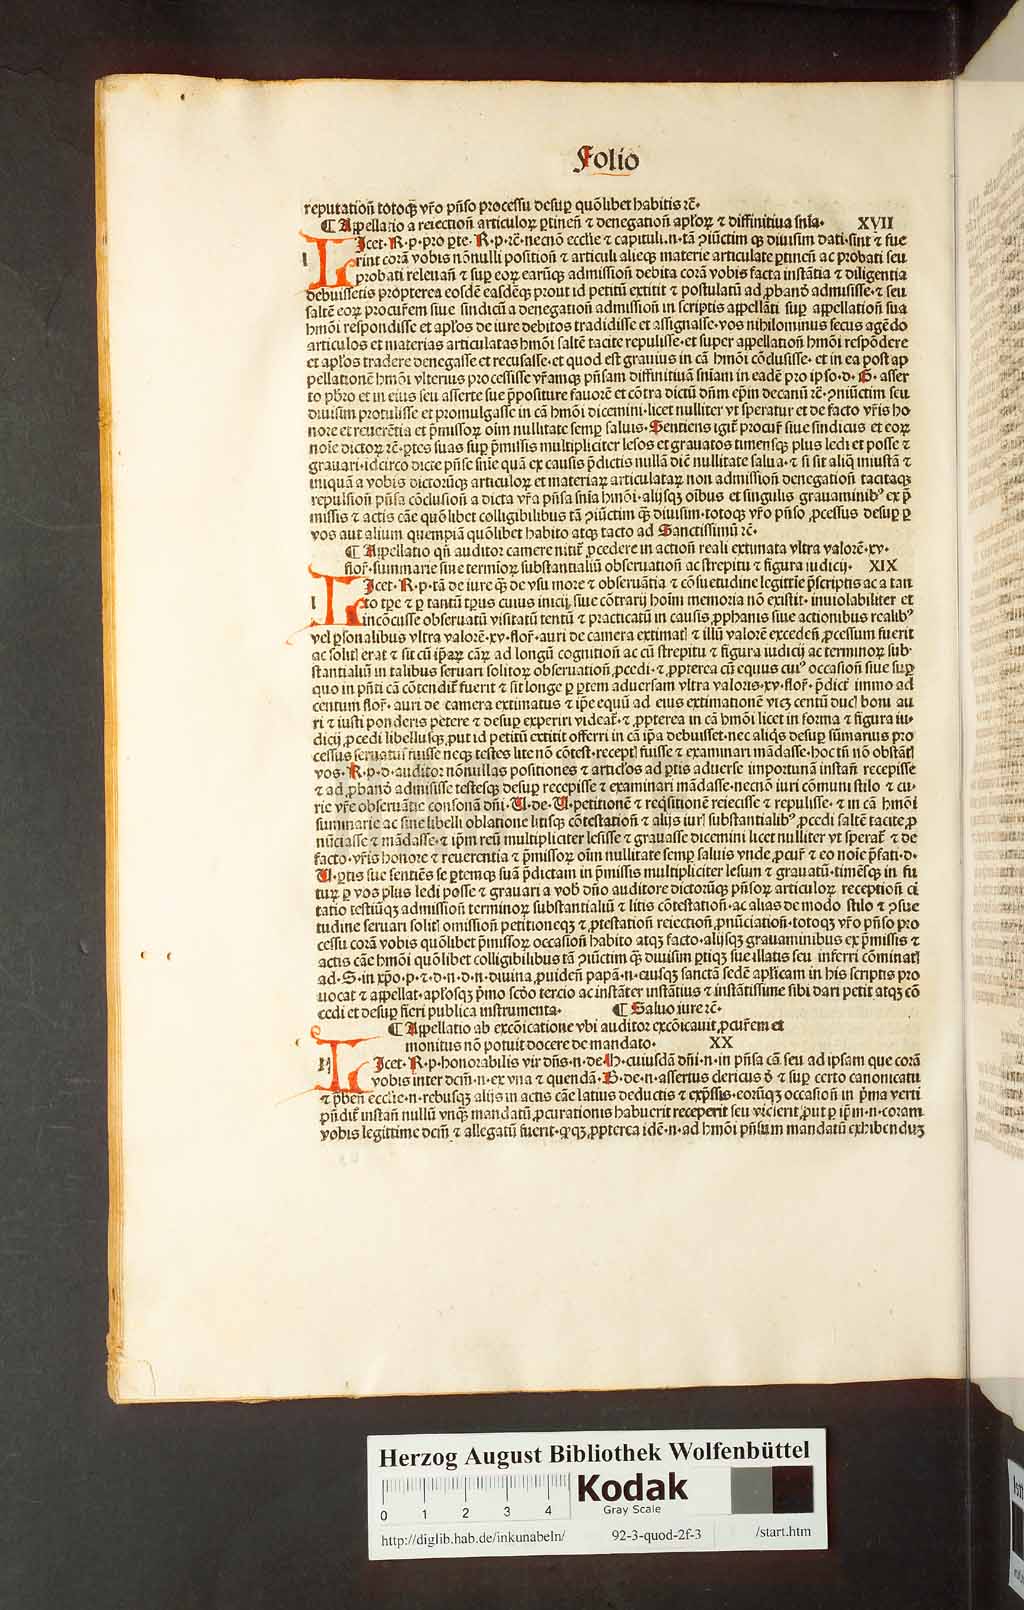 Folio
reputationñ totoqꝫ vr̃o pñso processu desuꝑ quõlibet habitis ⁊c̃
¶ Appellatio a reiection̄ articuloꝝ ꝑtineñ ⁊ denegation̄ apl̃oꝝ ⁊ diffinitiua sñia· XVII
LIcet·R·p·pro ꝑte·R·p·⁊c̃·necnõ eccl̃ie ⁊ capituli·n·tã ɔiũctim qꝫ diuisim dati·sint ⁊ fue
rint corã vobis nõnulli position̄ ⁊ articuli alieqꝫ materie articulate ꝑtineñ ac probati seu
probati releuañ ⁊ suꝑ eoꝝ earũqꝫ admission̄ debita corã vobis facta instãtia ⁊ diligentia
debuissetis propterea eosdẽ easdẽqꝫ prout id petitũ extitit ⁊ postulatũ ad ꝓbanð admisisse·⁊ seu
saltẽ eoꝝ procur̃em siue sindicũ a denegation̄ admission̄ in scriptis appellãti suꝑ appellation̄ sua
hmõi respondisse et apl̃os de iure debitos tradidisse et assignasse·vos nihilominus secus agẽdo
articulos et materias articulatas hmõi saltẽ tacite repulisse·et super appellation̄ hmõi respõdere
et apl̃os tradere denegasse et recusasse·et quod est grauius in cã hmõi cõclusisse·et in ea post ap
pellationẽ hmõi vlterius processisse vr̃amqꝫ pñsam diffinitiuã sñiam in eadẽ pro ipso·d·G·asser
to pb̃ro et in eius seu asserte sue p̃positure fauorẽ et cõtra dictũ dñm ep̃in decanũ ⁊c̃·ɔniũctim seu
diuisim protulisse et promulgasse in cã hmõi dicemini·licet nulliter vt speratur et de facto vr̃is ho
nore et reuerẽtia et p̃missoꝝ oĩm nullitate semꝑ saluis·Sentiens igit̃ procur̃ siue sindicus et eoꝝ
noĩe dictoꝝ ⁊c̃·ꝑtes suas suꝑ p̃missis multipliciter lesos et grauatos timensqꝫ plus ledi et posse ⁊
grauari·idcirco dicte pñse sñie quã ex causis p̃dictis nullã diẽ nullitate salua·⁊ si sit aliq̃ iniustã ⁊
iniquã a vobis dictorũqꝫ articuloꝝ et materiaꝝ articulataꝝ non admission̄ denegation̄ tacitaqꝫ
repulsion̄ pñsa cõclusion̄ a dicta vr̃a pñsa sñia hmõi·alijsqꝫ oĩbus et singulis grauaminib⁹ ex p̃
missis ⁊ actis cãe quõlibet colligibilibus tã ɔiũctim qꝫ diuisim·totoqꝫ vr̃o pñso ꝓcessus desuꝑ ꝑ
vos aut alium quempiã quõlibet habito atqꝫ tacto ad Sanctissimũ ⁊c̃·
¶ Appellatio qñ auditor camere nitit̃ ꝓcedere in action̄ reali extimata vltra valorẽ·xv·
flor̃·summarie siue termioꝝ substantialiũ obseruation̄ ac strepitu ⁊ figura iudicij· XIX
LIcet·R·p·tã de iure qꝫ de vsu more ⁊ obseruãtia ⁊ cõsuetudine legittĩe p̃scriptis ac a tan
to tꝑe ⁊ ꝑ tantũ tꝑus cuius inicij siue cõtrarij hoĩm memoria nõ existit·inuiolabiliter et
incõcusse obseruatũ visitatũ tentũ ⁊ practicatũ in causis ꝓphanis siue actionibus realib⁹
vel ꝑsonalibus vltra valorẽ·xv·flor̃·auri de camera extimatꝭ ⁊ illũ valorẽ excedeñ ꝓcessum fuerit
ac solitꝭ erat ⁊ sit cũ ip̃aꝝ cãꝝ ad longũ cognition̄ ac cũ strepitu ⁊ figura iudicij ac terminoꝝ sub·
stantialiũ in talibus seruari solitoꝝ obseruation̄ ꝓcedi·⁊ ꝓpterea cũ equus cui⁹ occasion̄ siue suꝑ
quo in pñti cã cõtendit̃ fuerit ⁊ sit longe ꝑ ꝑtem aduersam vltra valoris·xv·flor̃·p̃dict̃ immo ad
centum flor̃·auri de camera extimatus ⁊ ip̃e equũ ad eius extimationẽ vicꝫ centũ ducꝭ boni au
ri ⁊ iusti ponderis petere ⁊ desuꝑ experiri videat̃·⁊ ꝓpterea in cã hmõi licet in forma ⁊ figura iu·
dicij ꝓcedi libellusqꝫ ꝓut id petitũ extitit offerri in cã ip̃a debuisset·nec aliq̃s desuꝑ sũmarius pro
cessus seruatus fuisse neqꝫ testes lite nõ cõtest·receptꝭ fuisse ⁊ examinari mãdasse·hoc tñ nõ obstãtꝭ
vos·R·p·d·auditor nõnullas positiones ⁊ articl̃os ad ꝑtis aduerse importunã instañ recepisse
⁊ ad ꝓbanð admisisse testesqꝫ desuꝑ recepisse ⁊ examinari mãdasse·necnõ iuri cõmuni stilo ⁊ cu·
rie vr̃e obseruãtie consonã dñi·U·de·U·petitionẽ ⁊ req̃sitionẽ reiecisse ⁊ repulisse·⁊ in cã hmõi
summarie ac sine libelli oblatione litisqꝫ cõtestation̄ ⁊ alijs iurꝭ substantialib⁹ ꝓcedi saltẽ tacite ꝓ
nũciasse ⁊ mãdasse·⁊ ip̃m reũ multipliciter lesisse ⁊ grauasse dicemini licet nulliter vt sperat̃ ⁊ de
facto·vr̃is honore ⁊ reuerentia ⁊ p̃missoꝝ oĩm nullitate semꝑ saluis vnde ꝓcur̃ ⁊ eo noĩe p̃fati·d·
U·ꝑtis sue sentiẽs se ꝑtemqꝫ suã p̃dictam in p̃missis multipliciter lesum ⁊ grauatũ·timẽsqꝫ in fu
tuꝝ ꝑ vos plus ledi posse ⁊ grauari a vob̃ dño auditore dictorũqꝫ pñsoꝝ articuloꝝ reception̄ ci
tatio testiũqꝫ admission̄ terminoꝝ substantialiũ ⁊ litis cõtestation̄·ac alias de modo stilo ⁊ ɔsue
tudine seruari solitꝭ omission̄ petitioneqꝫ ⁊ ꝓtestation̄ reiection̄ ꝓnũciation̄·totoqꝫ vr̃o pñso pro
cessu corã vobis quõlibet p̃missoꝝ occasion̄ habito atqꝫ facto·alijsqꝫ grauaminibus ex p̃missis ⁊
actis cãe hmõi quõlibet colligibilibus tã ɔiũctim qꝫ diuisim ꝑtiqꝫ sue illatis seu inferri cõminatꝭ
ad·S·in xp̃o·p·⁊·d·n·d·n·diuina ꝓuideñ papã·n·eiusqꝫ sanctã sedẽ apl̃icam in his scriptis pro
uocat ⁊ appellat·apl̃osqꝫ p̃mo scðo tercio ac instãter instãtius ⁊ instãtissime sibi dari petit atqꝫ cõ
cedi et desuꝑ fieri publica instrumenta· ¶ Saluo iure ⁊c̃·
¶ Appellatio ab excõicatione vbi auditor excõicauit ꝓcur̃em et
monitus nõ potuit docere de mandato· XX
LIcet·R·p·honorabilis vir dñs·n·de·h·cuiusdã dñi·n·in pñsa cã seu ad ipsam que corã
vobis inter dcm̃·n·ex vna ⁊ quendã·B·de·n·assertus clericus ð ⁊ suꝑ certo canonicatu
⁊ p̃beñ eccl̃ie·n·rebusqꝫ alijs in actis cãe latius deductis ⁊ exp̃ssis·eorũqꝫ occasion̄ in p̃ma verti
p̃ndit̃ instañ nullũ vnqꝫ mandatũ ꝓcurationis habuerit receperit seu viderit ꝓut ꝑ ip̃m·n·coram
vobis legittime dcm̃ ⁊ allegatũ fuerit·ꝙqꝫ ꝓpterea idẽ·n·ad hmõi pñsum mandatũ exhibenduꝫ
Herzog August Bibliothek Wolfenbüttel
Kodak
Gray Scale
0 1 2 3 4
http://diglib.hab.de/inkunabeln/ 92-3-quod-2f-3 /start.htm